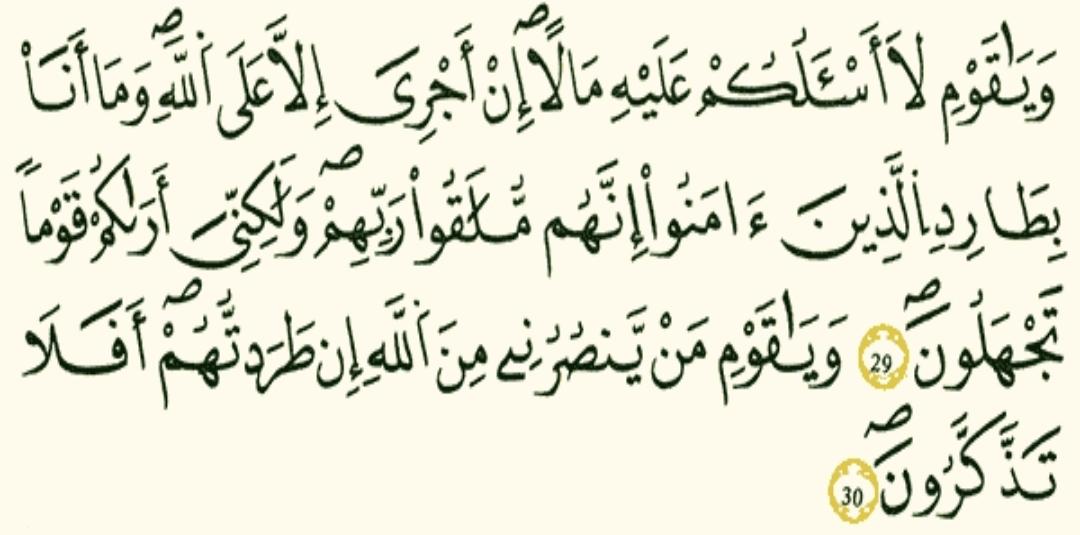 وَيَٰقَوْمِ لَا أَسْـَٔلُكُمْ عَلَيْهِ مَالًاۖ إِنْ أَجْرِىَ إِلَّا عَلَى ٱللَّهِۖ وَمَا أَنَا۠
بِطَارِدِ ٱلَّذِينَ ءَامَنُوا۟ إِنَّهُم مُّلَٰقُوا۟ رَبِّهِمْۖ وَلَٰكِنِّىَ أَرَىٰكُمْ قَوْماً
تَجْهَلُونَۖ 29 وَيَٰقَوْمِ مَنْ يَّنصُرُنِے مِنَ ٱللَّهِ إِن طَرَدتُّهُمْۖ أَفَلَا
تَذَّكَّرُونَۖ 30